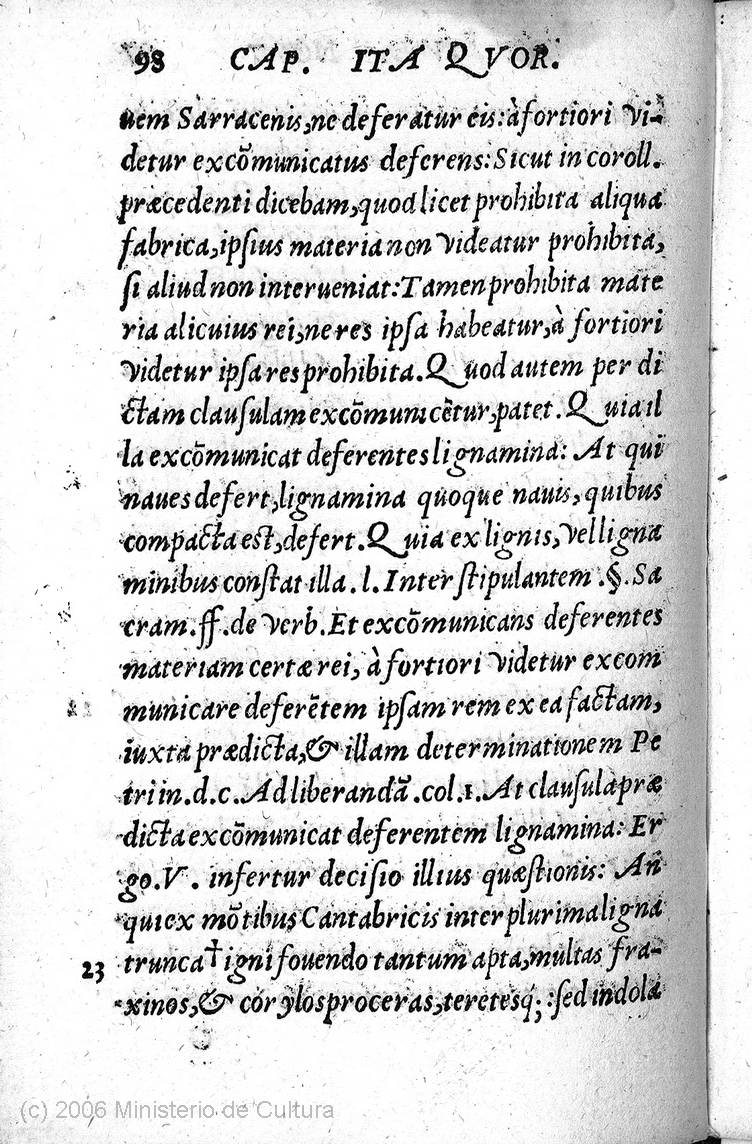 98 CAP. ITA QVOR.
uem Sarracenis, ne deferatur eis: à fortiori vi-
detur excõmunicatus deferens: Sicut in coroll.
præcedenti dicebam, quod licet prohibita aliqua
fabrica, ipſius materia non videatur prohibita,
ſi aliud non interueniat: Tamen prohibita mate
ria alicuius rei, ne res ipſa habeatur, à fortiori
videtur ipſa res prohibita. Quod autem per di
ctam clauſulam excõmunicẽtur, patet. Quia il
la excõmunicat deferentes lignamina: At qui
naues defert, lignamina quoque nauis, quibus
compacta est, defert. Quia ex lignis, vel ligna
minibus conſtat illa. l. Inter ſtipulantem .§. Sa
cram. ff. de verb. Et excõmunicans deferentes
materiam certæ rei, à fortiori videtur excom
municare deferẽtem ipſam rem ex ea factam,
iuxta prædicta, & illam determinationem Pe
tri in. d. c. Ad liberandã. col. 1. At clauſula præ
dicta excõmunicat deferentem lignamina: Er
go. V. infertur deciſio illius quæſtionis: An
qui ex mõtibus Cantabricis inter plurima ligna
23 trunca † igni fouendo tantum apta, multas fra-
xinos, & corylos proceras, teretesq́;: ſed indola
(c) 2006 Ministerio de Cultura